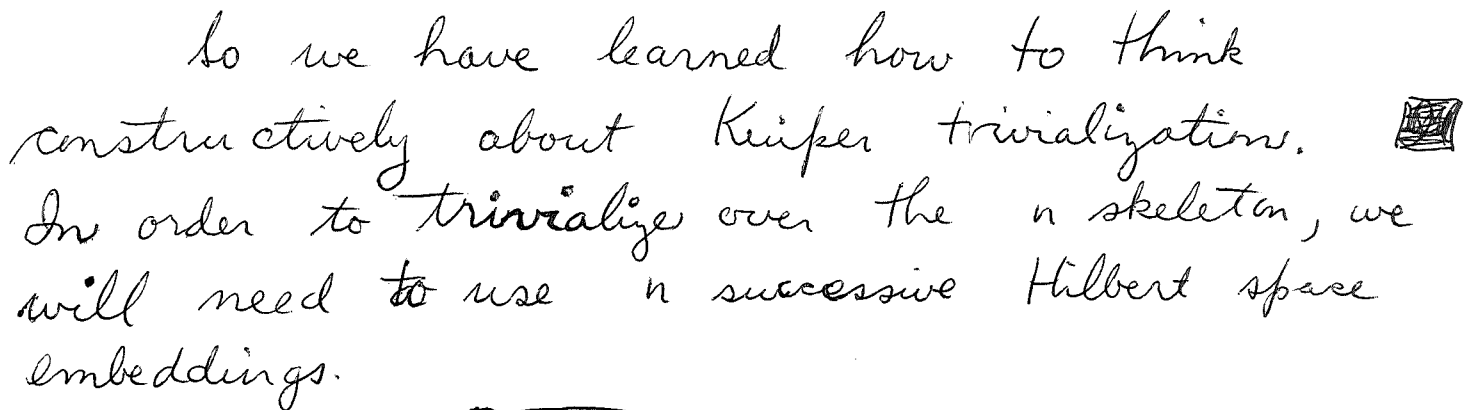 So we have learned how to think
constructively about Kuiper trivialization.
In order to trivialize over the n skeleton, we
will need to use n successive Hilbert space
embeddings.